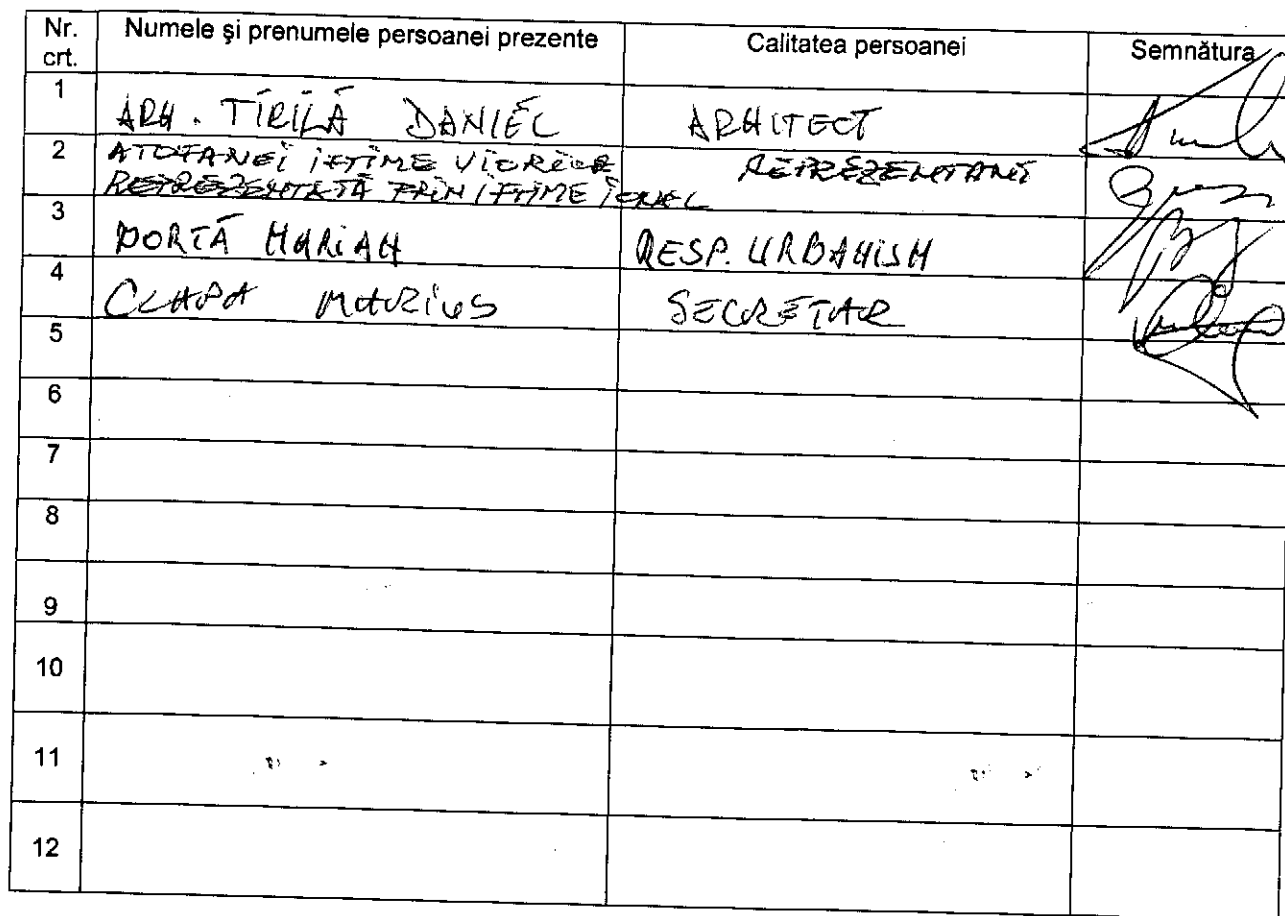 Nr. crt. Numele și prenumele persoanei prezente Calitatea persoanei Semnătura
1 ARH. TIRILĂ DANIEL ARHITECT
2 ATOFANEI IFTIME VIORICA REPREZENTANT
REPREZENTATĂ PRIN IFTIME IONEL
3 PORTĂ MARIAN RESP. URBANISM
4 CLAPA MARIUS SECRETAR
5
6
7
8
9
10
11
12